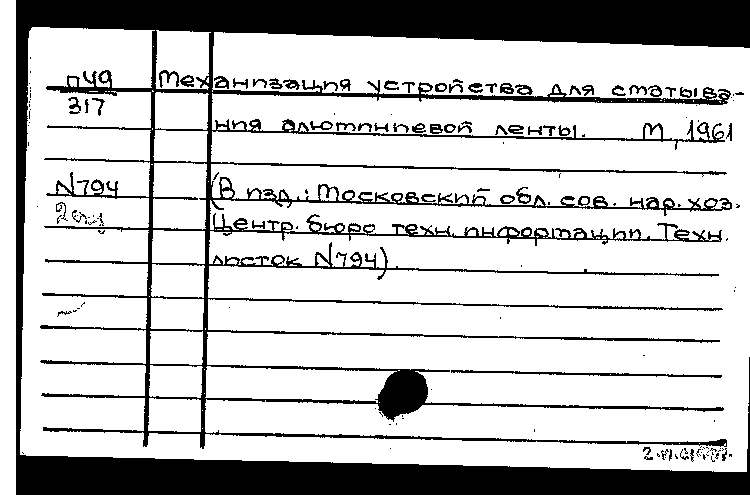 П49 Механизация устройства для сматыва-
317
ния алюминиевой ленты. М, 1961
N794 (В изд.: Московский обл. сов. нар. хоз.
2 экз Центр. бюро техн. информации. Техн.
листок N794).